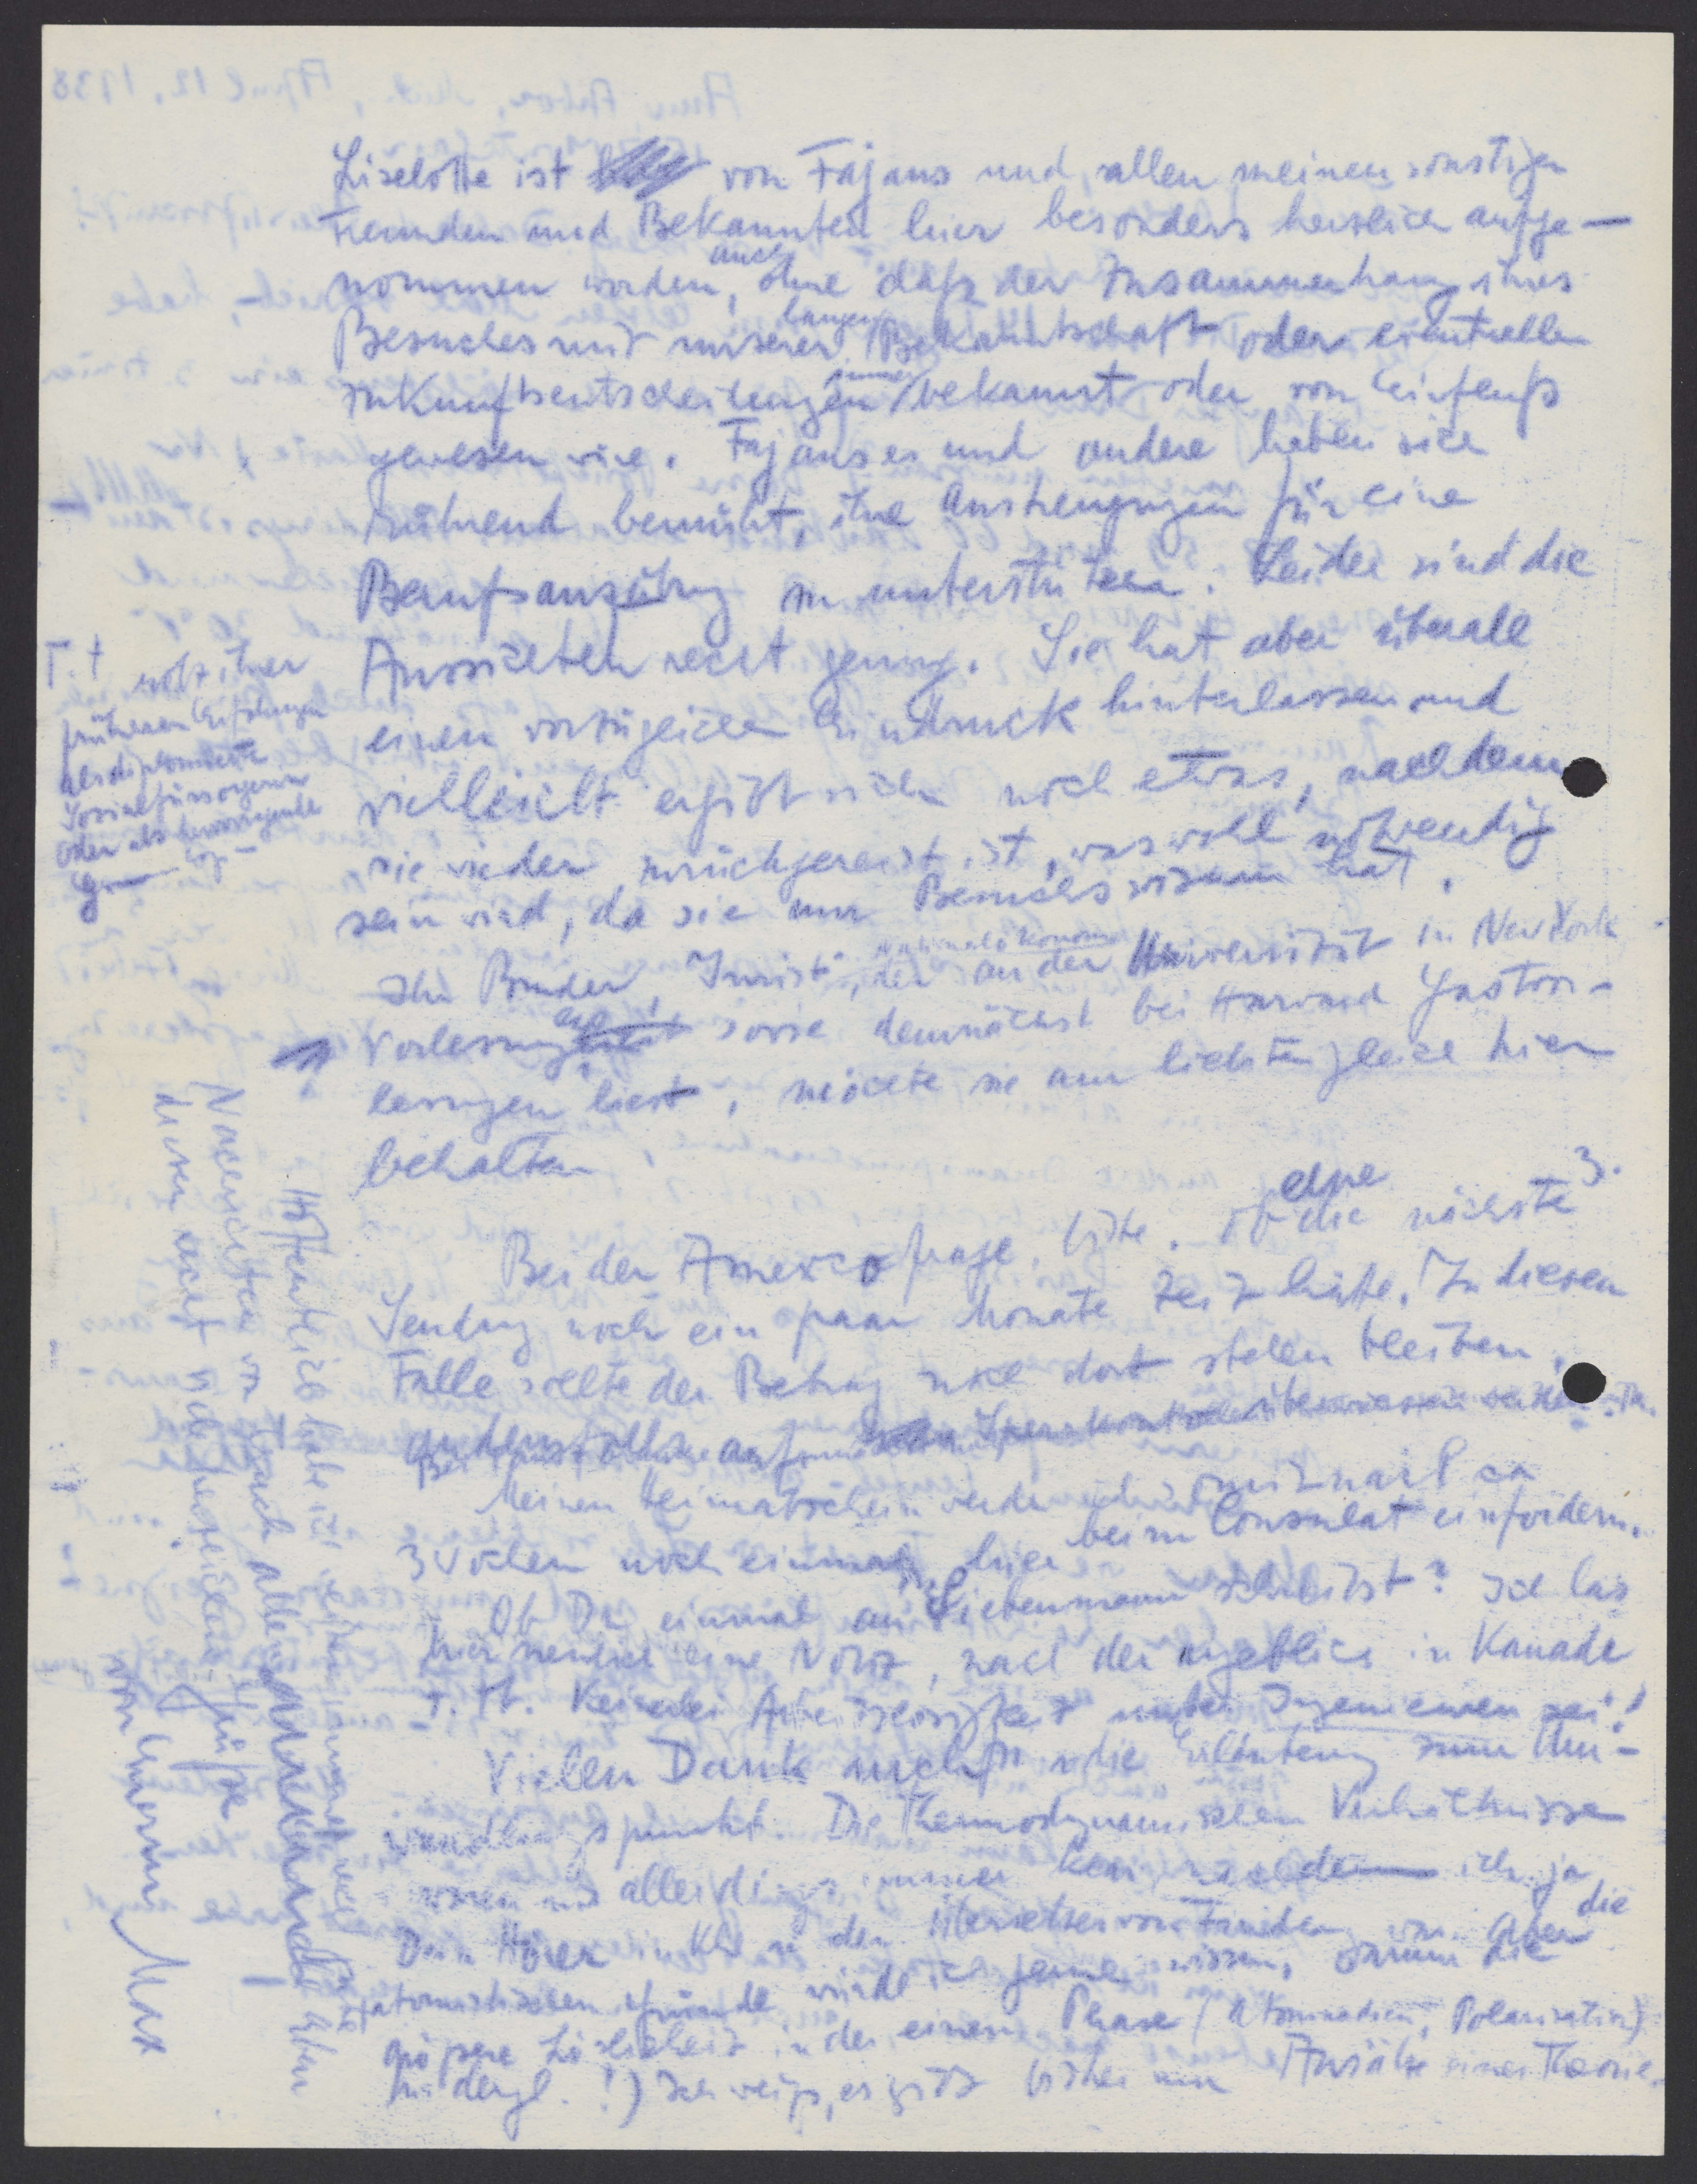 Liselotte ist von Fajans und allen meinen sonstigen
Freunden und Bekannten hier besonders herzlich aufge-
nommen worden, auch ohne daß der Zusammenhang ihres
Besuches mit unserer langen Bekanntschaft oder eventuellen
Zukunftsentscheidungen bekannt oder von Einfluß
gewesen wäre. Fajanses und andere haben sich
rührend bemüht, ihre Anstrengungen für eine
Berufsausübung zu unterstützen. Leider sind die
Aussichten recht gering. Sie hat aber überall
einen vorzüglichen Eindruck hinterlassen und
vielleicht ergibt sich noch etwas, nachdem
sie wieder zurückgereist ist, was wohl notwendig
sein wird, da sie nur Besuchsvisum hat.
Ihr Bruder, Jurist, Nationalökonom der an der Universität in New York
Vorlesungen sowie demnächst bei Harvard Gastvor-
lesungen liest, möchte sie am liebsten gleich hier
behalten
T.t trotz ihrer
früheren Erfahrungen
als diplomierte
Sozialfürsorgerin
oder als hervorragende
Bei der Amexcofrage bitte. ob die nächste 3.
Sendung noch ein paar Monate Zeit hätte. In diesem
Falle sollte der Betrag noch dort stehen bleiben,
Meinen Heimatschein werde ich mit nach ca
3 Wochen noch einmal hier beim Consulat einfordern.
Ob Du einmal an Liebenmann schreibst? Ich las
hier neulich eine Notiz, nach der angeblich in Kanada
z. Zt. keinerlei Arbeitslosigkeit unter Ingenieuren sei!
Vielen Dank auch für die Erläuterung zum Um-
wandlungspunkt. Die Thermodynamischen Verhältnisse
waren mir allerdings immer klar, nachdem ich ja
Dein Hörer in Kiel u. der Übersetzer von war. Aber die
atomistischen Gründe würde ich gerne wissen, warum die
größere Löslichkeit in der einen Phase (Atomradien, Polarisation)
u. dergl. !) Ich weiß, es gibt bisher nur Ansätze einer Theorie.
Hoffentlich habe ich
Nachrichten von Euch allen
diesen recht viel herzliche Grüße
von Eurem Max